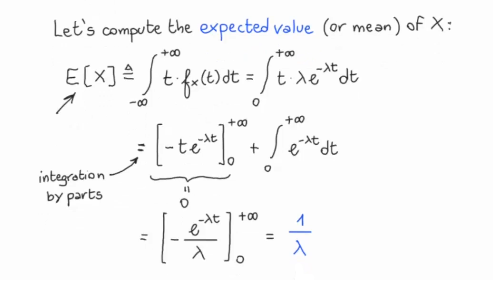 Let's compute the expected value (or mean) of X:
E[X] ≜ ∫_{-∞}^{+∞} t · f_X(t) dt = ∫_0^{+∞} t · λe^{-λt} dt
= [-te^{-λt}]_0^{+∞} + ∫_0^{+∞} e^{-λt} dt
integration
by parts
"
0
= [-e^{-λt}/λ]_0^{+∞} = 1/λ